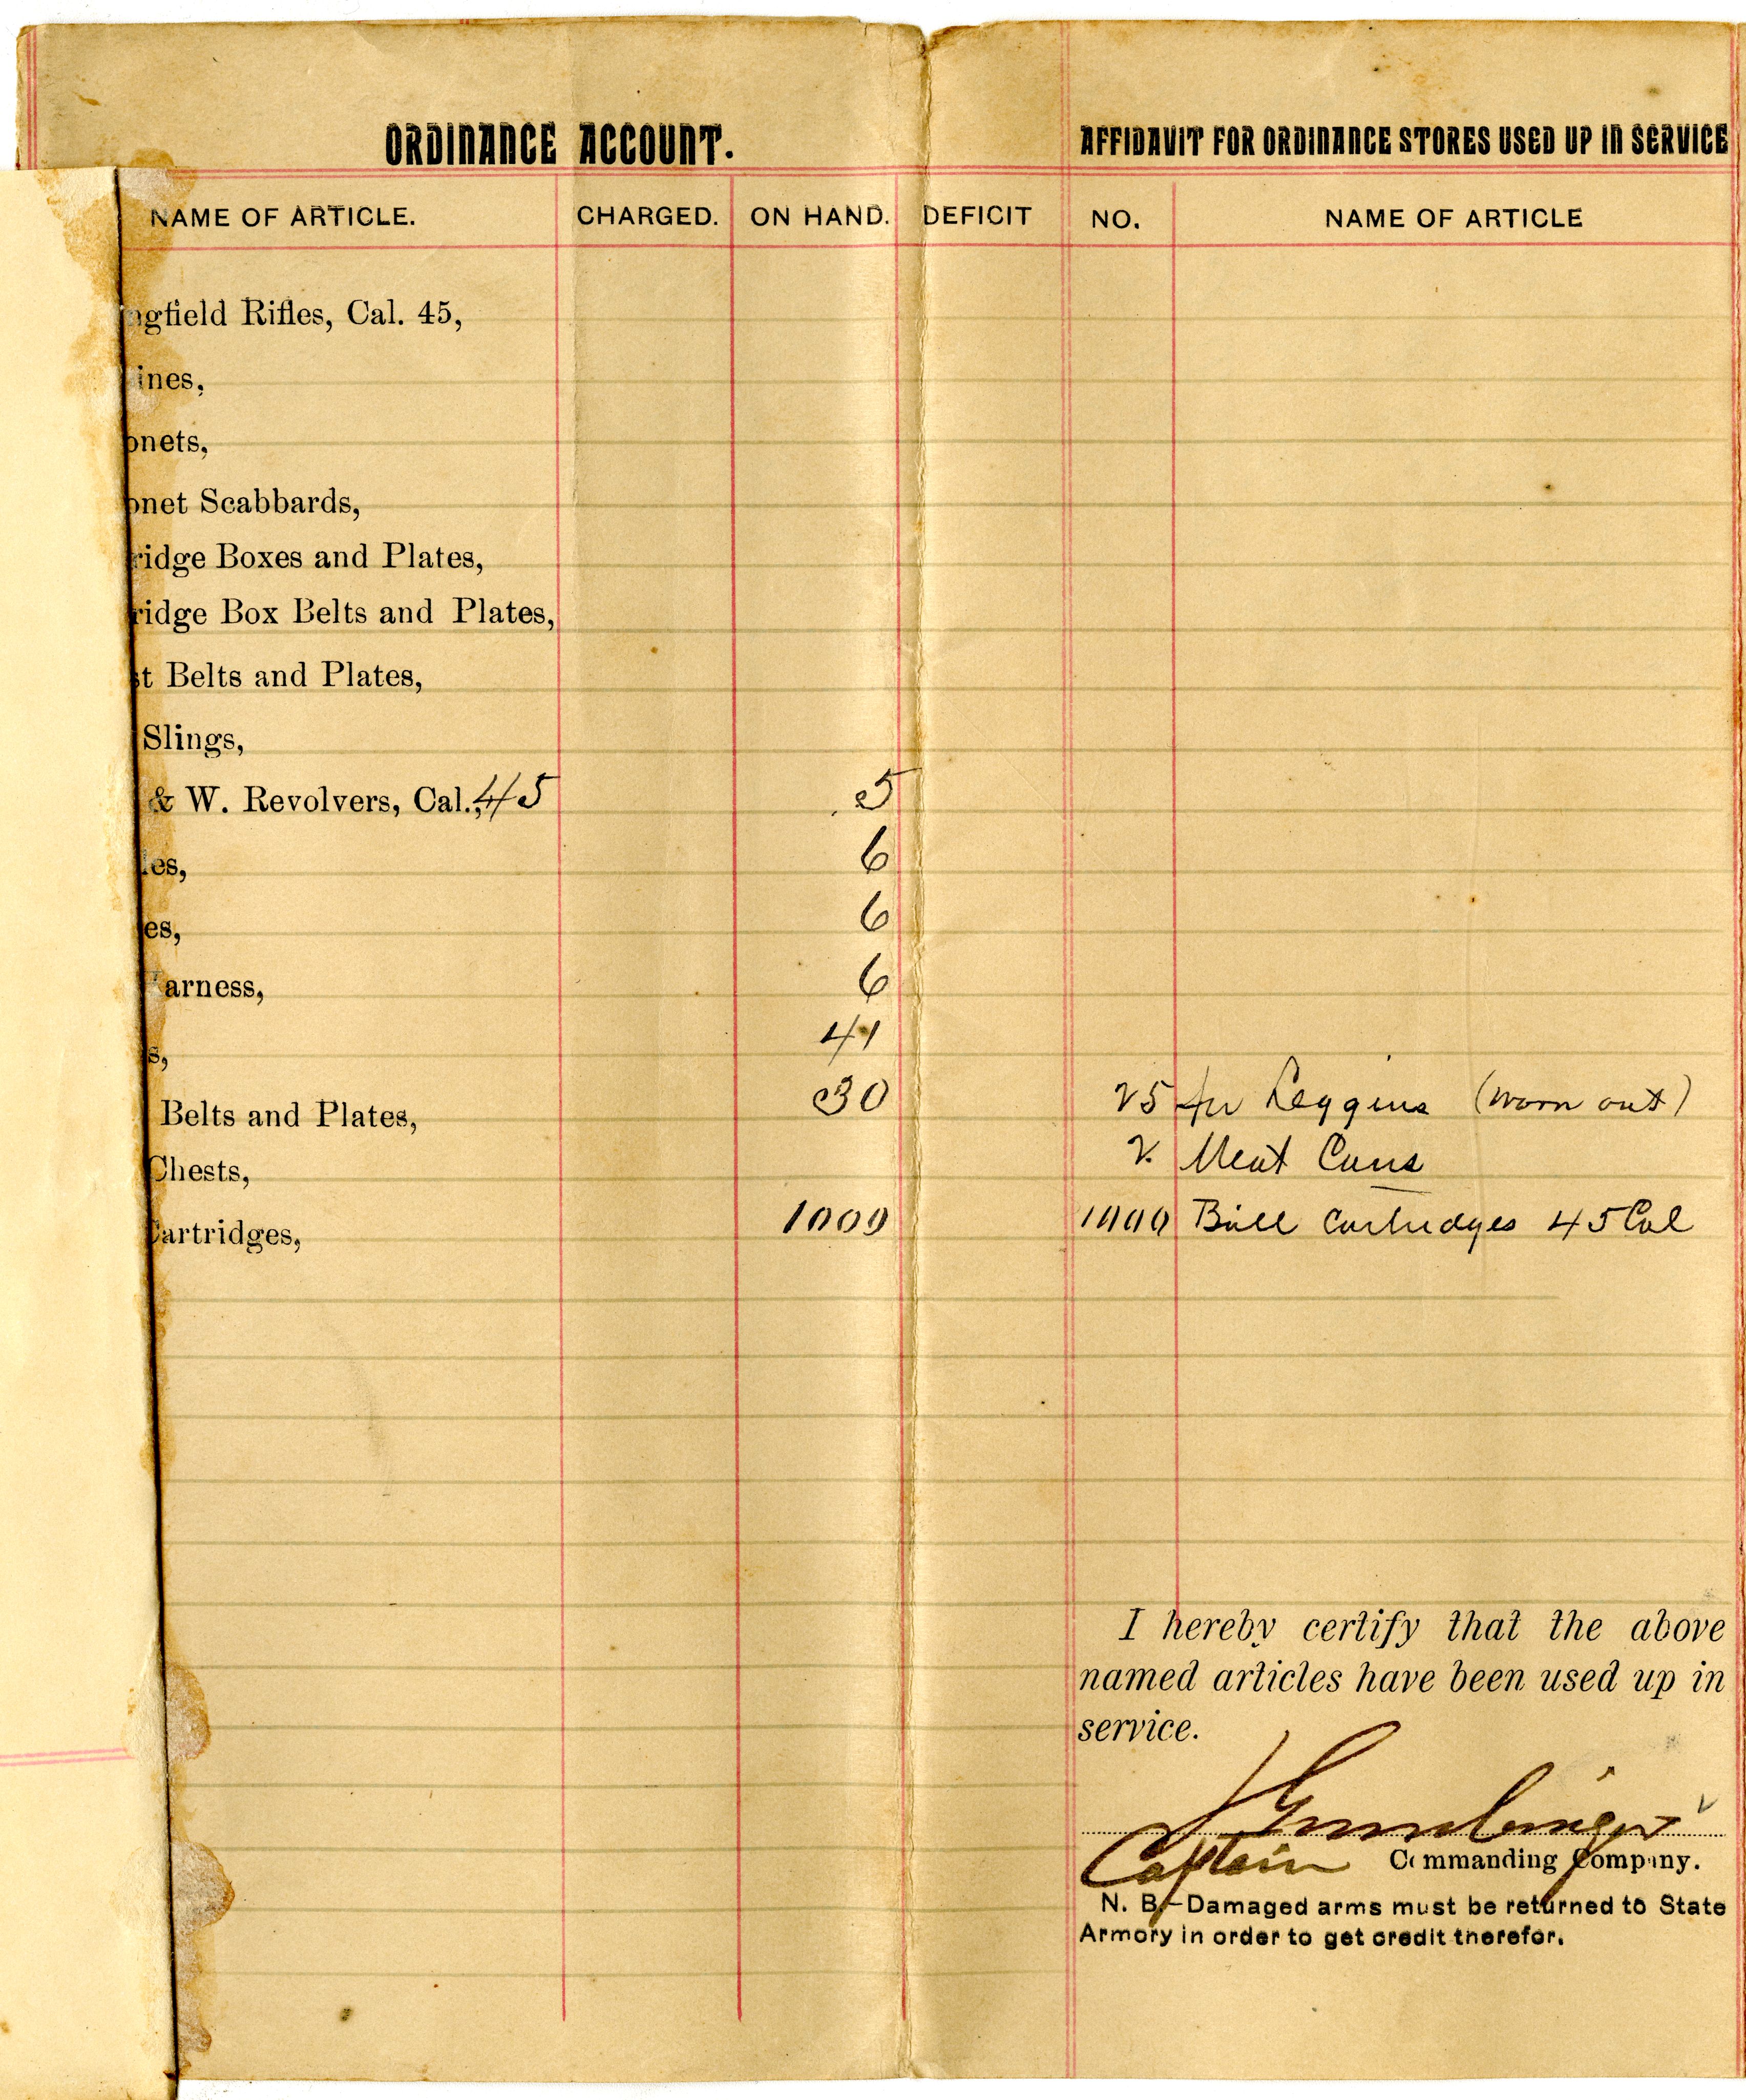 ORDINANCE ACCOUNT.
NAME OF ARTICLE. CHARGED. ON HAND. DEFICIT
ngfield Rifles, Cal. 45,
ines,
onets,
onet Scabbards,
ridge Boxes and Plates,
ridge Box Belts and Plates,
st Belts and Plates,
Slings,
& W. Revolvers, Cal., 45 5
les, 6
es, 6
arness, 6
s, 41
Belts and Plates, 30
Chests,
Cartridges, 1000
AFFIDAVIT FOR ORDINANCE STORES USED UP IN SERVICE
NO. NAME OF ARTICLE
25 pr Leggins (worn out)
2 Meat Cans
1000 Ball Cartridges 45 Cal
I hereby certify that the above
named articles have been used up in
service.
Captain Commanding Company.
N. B.—Damaged arms must be returned to State
Armory in order to get credit therefor.